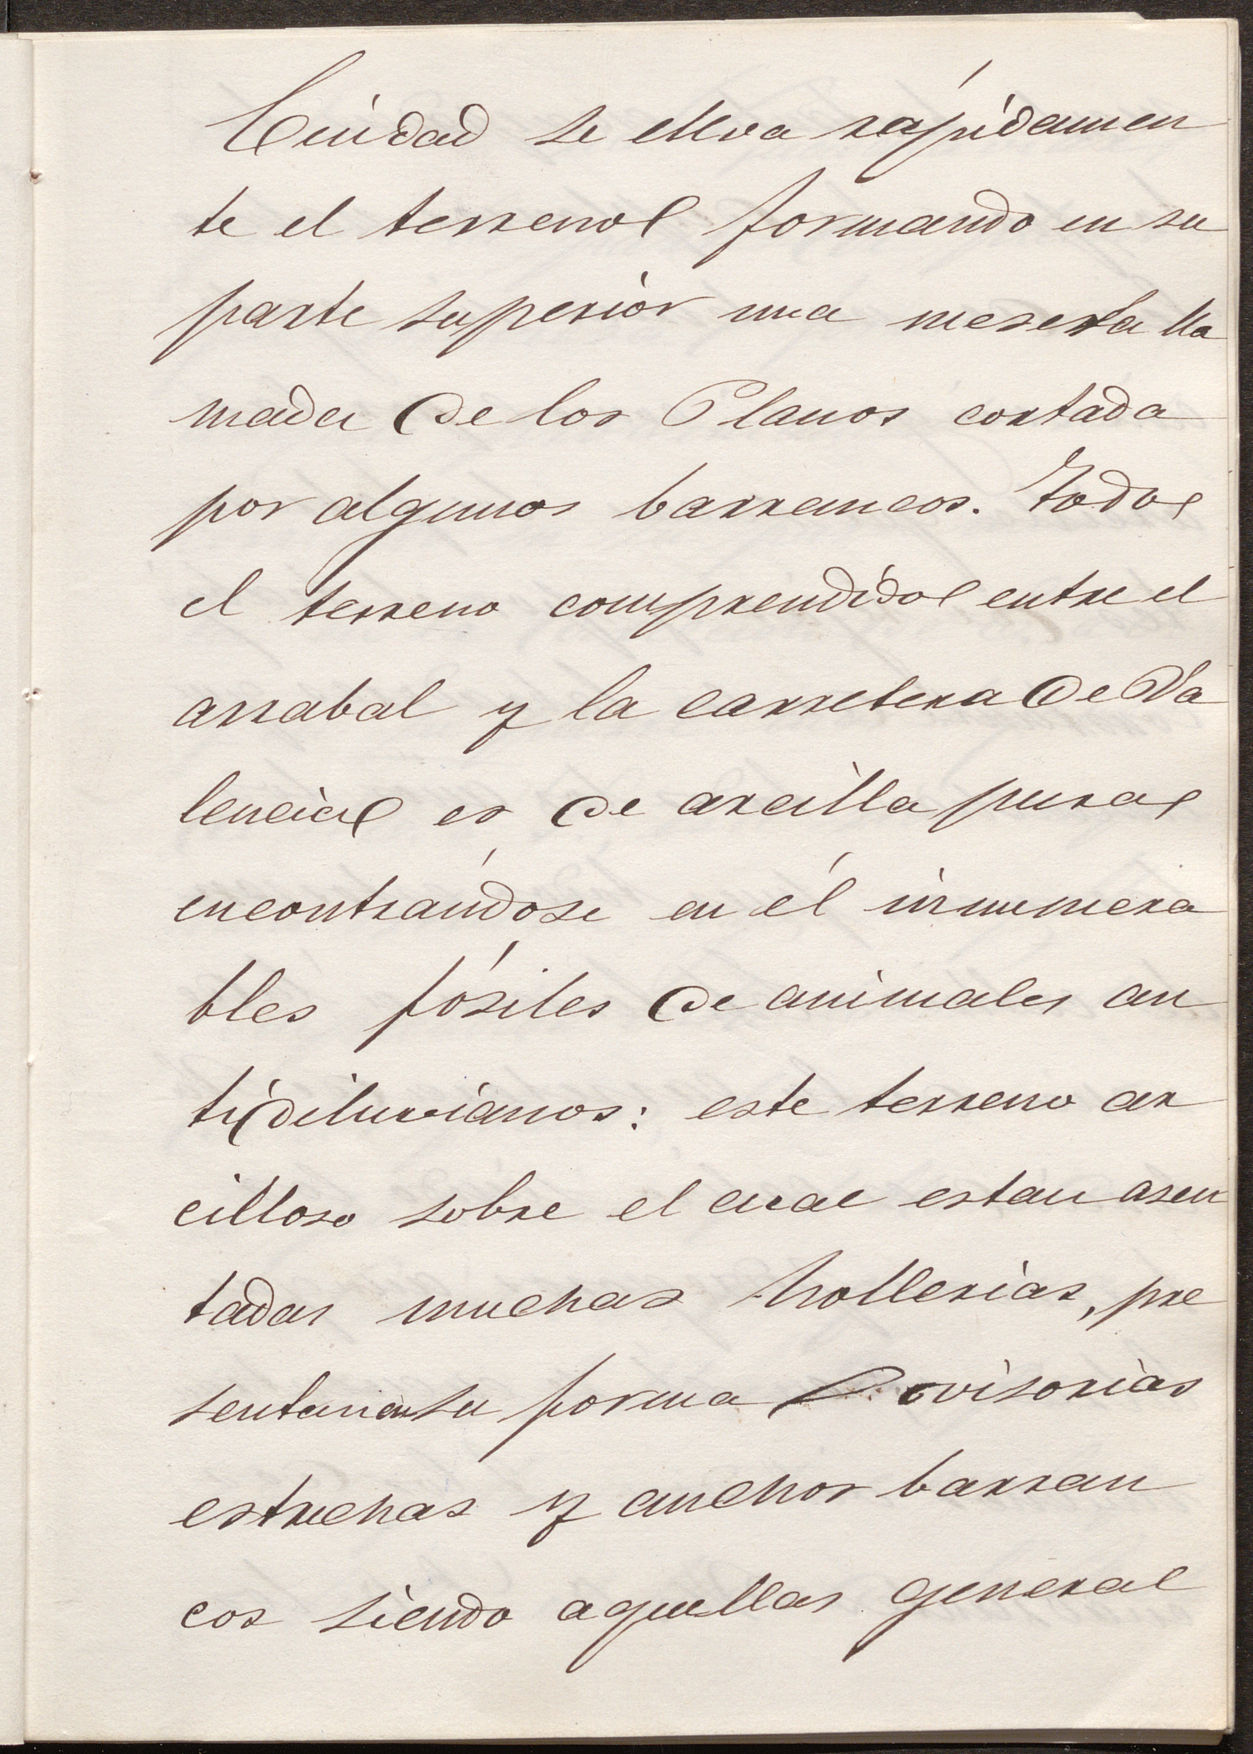 Ciudad se eleva rápidamen
te el terreno formando en su
parte superior una meseta lla
mada de los Planos cortada
por algunos barrancos. Todo
el terreno comprendido entre el
arrabal y la carretera de Va
lencia es de arcilla pura
encontrándose en él innumera
bles fósiles de animales an
tidiluvianos: este terreno ar
cilloso sobre el cual estan asen
tadas muchas hollerias, pre
senta en su forma divisorias
estrechas y anchos barran
cos siendo aquellas general